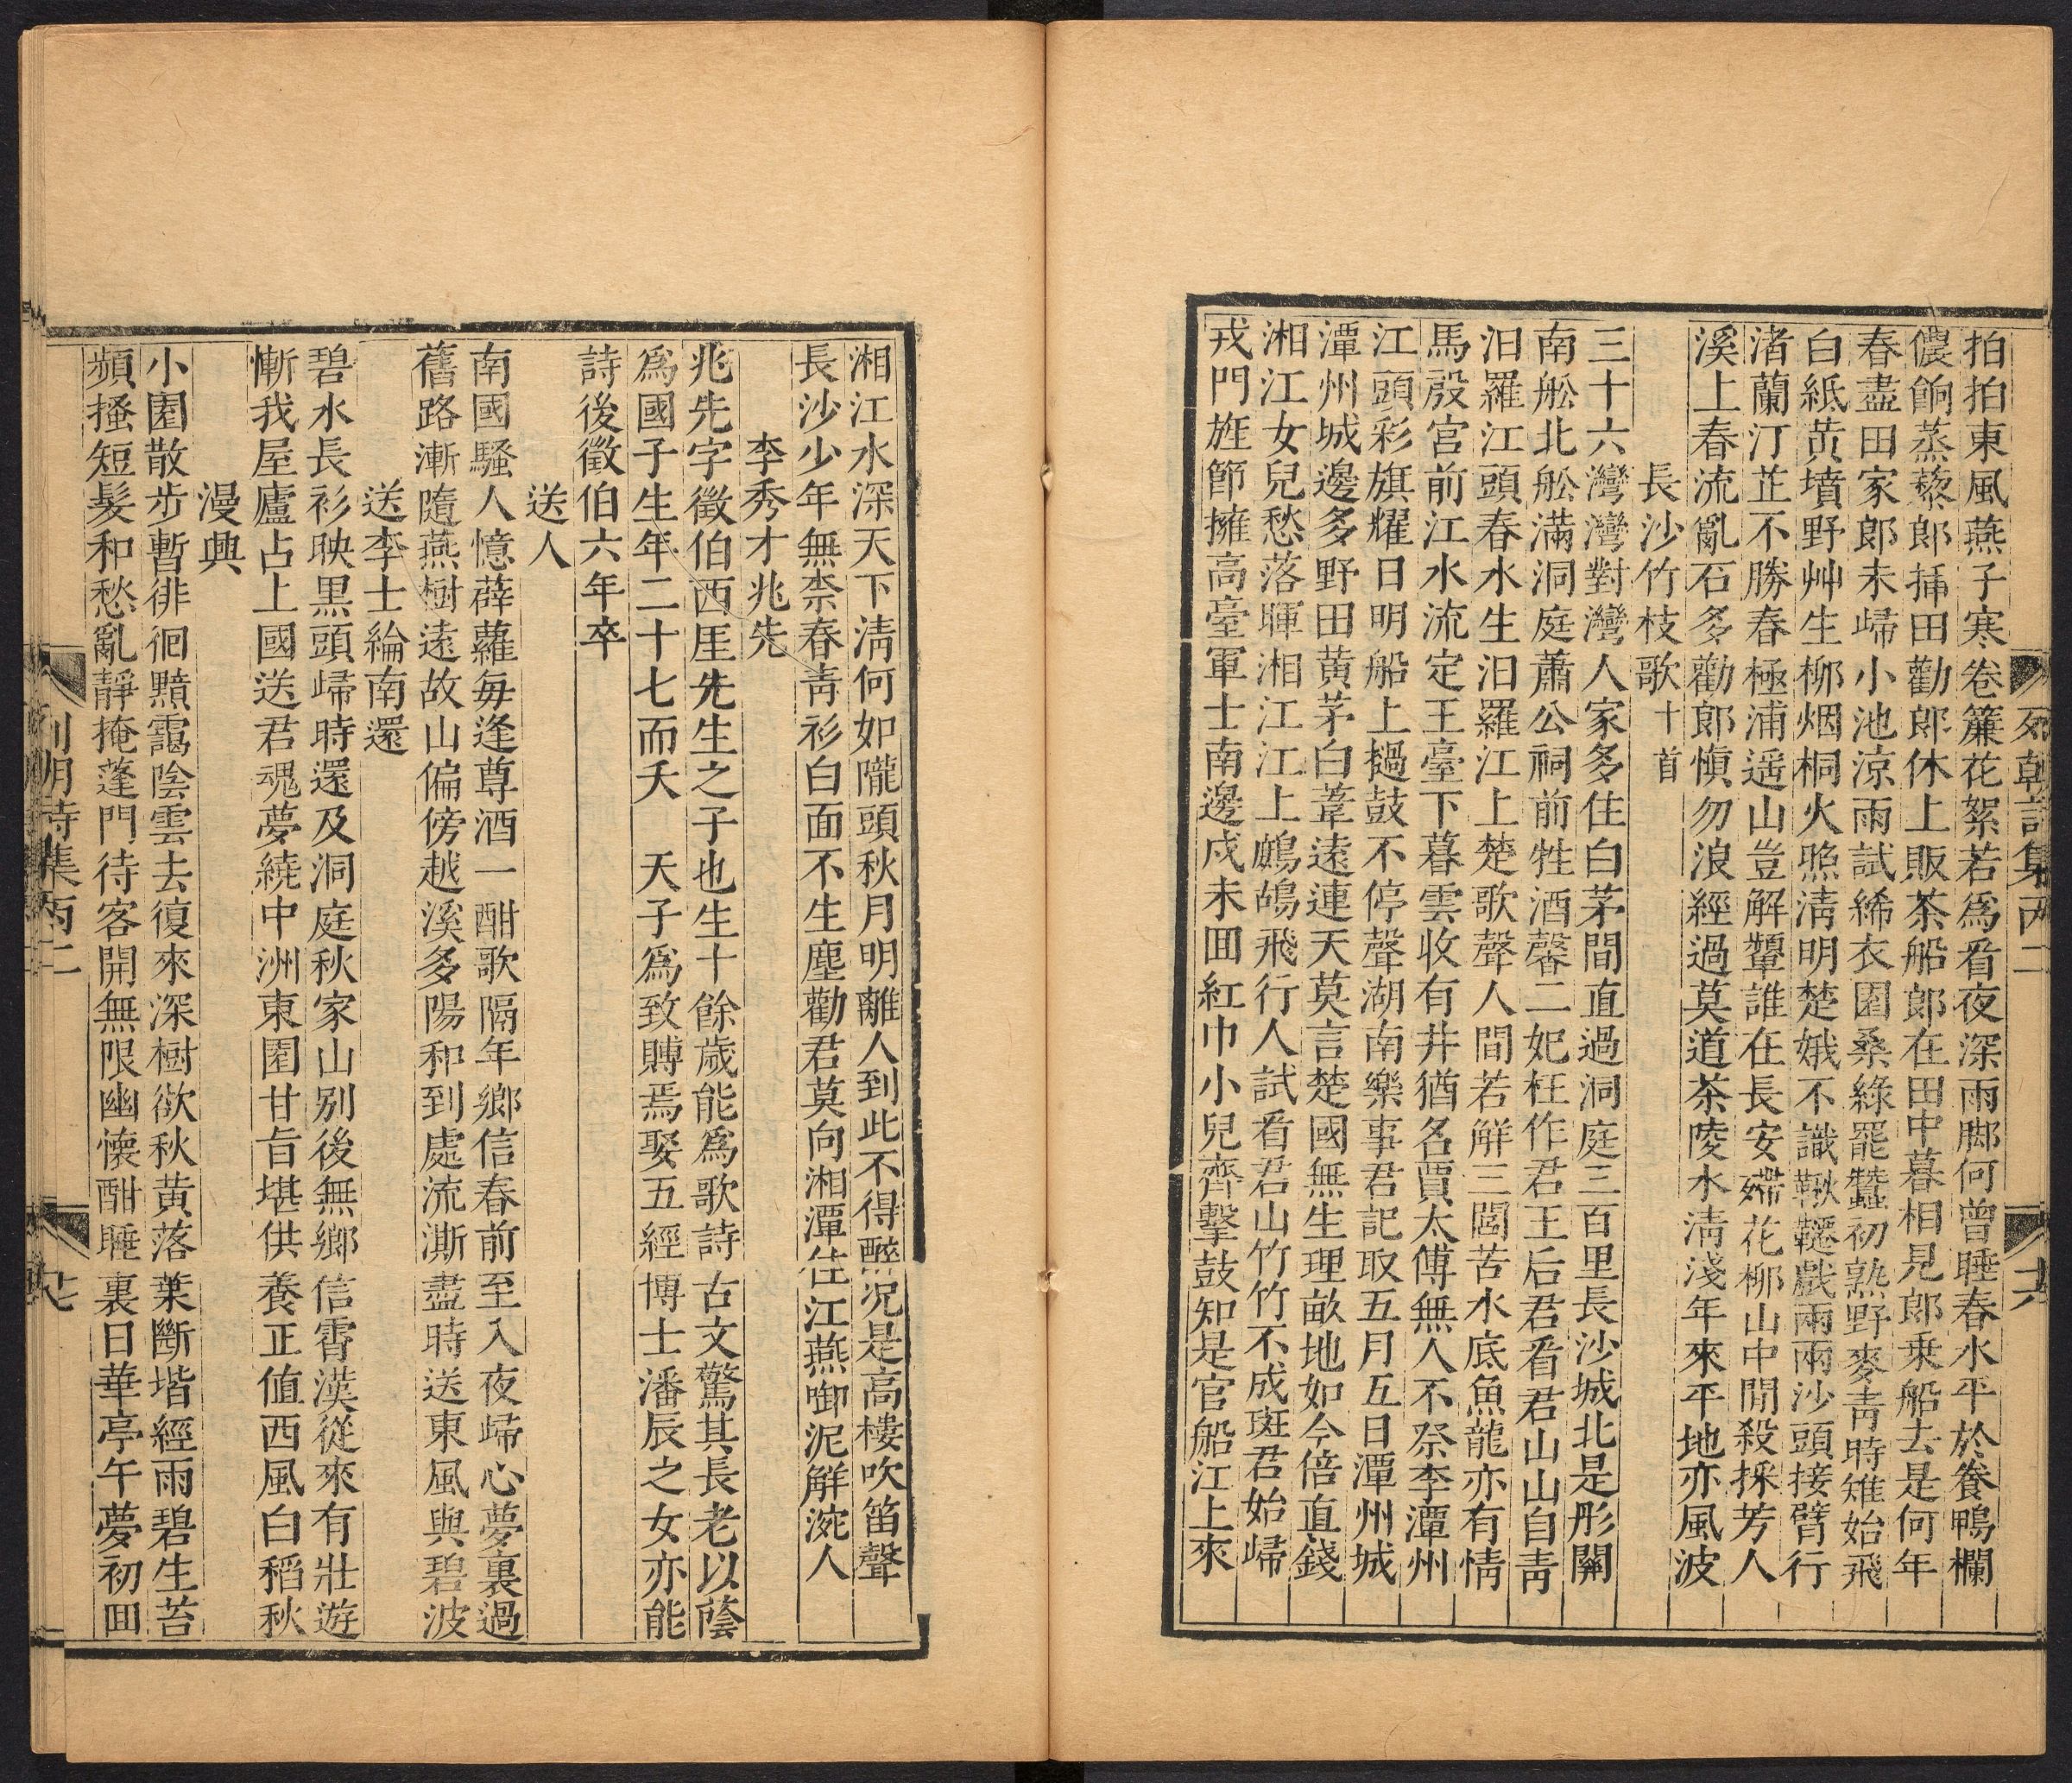 拍拍東風燕子寒卷簾花絮若爲看夜深雨脚何曾睡春水平於養鴨欄
儂餉蒸藜郎揷田勸郎休上販茶船郎在田中暮相見郎乗船去是何年
春盡田家郎未歸小池涼雨試絺衣園桑綠罷蠶初熟野麥青時雉始飛
白紙黄墳野艸生柳烟桐火照清明楚娥不識鞦韆戲兩兩沙頭接臂行
渚蘭汀芷不勝春極浦遥山豈解顰誰在長安帶花柳山中閒殺採芳人
溪上春流亂石多勸郎愼勿浪經過莫道茶陵水清淺年來平地亦風波
長沙竹枝歌十首
三十六灣灣對灣人家多住白茅間直過洞庭三百里長沙城北是彤關
南舩北舩滿洞庭蕭公祠前牲酒馨二妃枉作君王后君看君山山自靑
汨羅江頭春水生汨羅江上楚歌聲人間若解三閭苦水底魚龍亦有情
馬殷宮前江水流定王臺下暮雲收有井猶名賈太傅無人不祭李潭州
江頭彩旗耀日明船上撾鼓不停聲湖南樂事君記取五月五日潭州城
潭州城邊多野田黄茅白葦遠連天莫言楚國無生理畝地如今倍直錢
湘江女兒愁落暉湘江江上鷓鴣飛行人試看君山竹竹不成斑君始歸
戎門旌節擁高臺軍士南邊戍未囬紅巾小兒齊擊鼓知是官船江上來
列朝詩集丙二
六
湘江水深天下淸何如隴頭秋月明離人到此不得醉况是高樓吹笛聲
長沙少年無柰春靑衫白面不生塵勸君莫向湘潭住江燕啣泥解涴人
李秀才兆先
兆先字徵伯西厓先生之子也生十餘歲能爲歌詩古文驚其長老以蔭
爲國子生年二十七而夭　天子爲致賻焉娶五經博士潘辰之女亦能
詩後徵伯六年卒
送人
南國騷人憶薜蘿每逢尊酒一酣歌隔年鄉信春前至入夜歸心夢裏過
舊路漸隨燕樹遠故山偏傍越溪多陽和到處流澌盡時送東風與碧波
送李士綸南還
碧水長衫映黒頭歸時還及洞庭秋家山别後無鄉信霄漢從來有壯遊
慚我屋廬占上國送君魂夢繞中洲東園甘旨堪供養正値西風白稻秋
漫興
小園散步暫徘徊黯靄陰雲去復來深樹欲秋黄落葉斷堦經雨碧生苔
頻搔短髮和愁亂靜掩蓬門待客開無限幽懷酣睡裏日華亭午夢初囬
列朝詩集丙二
七